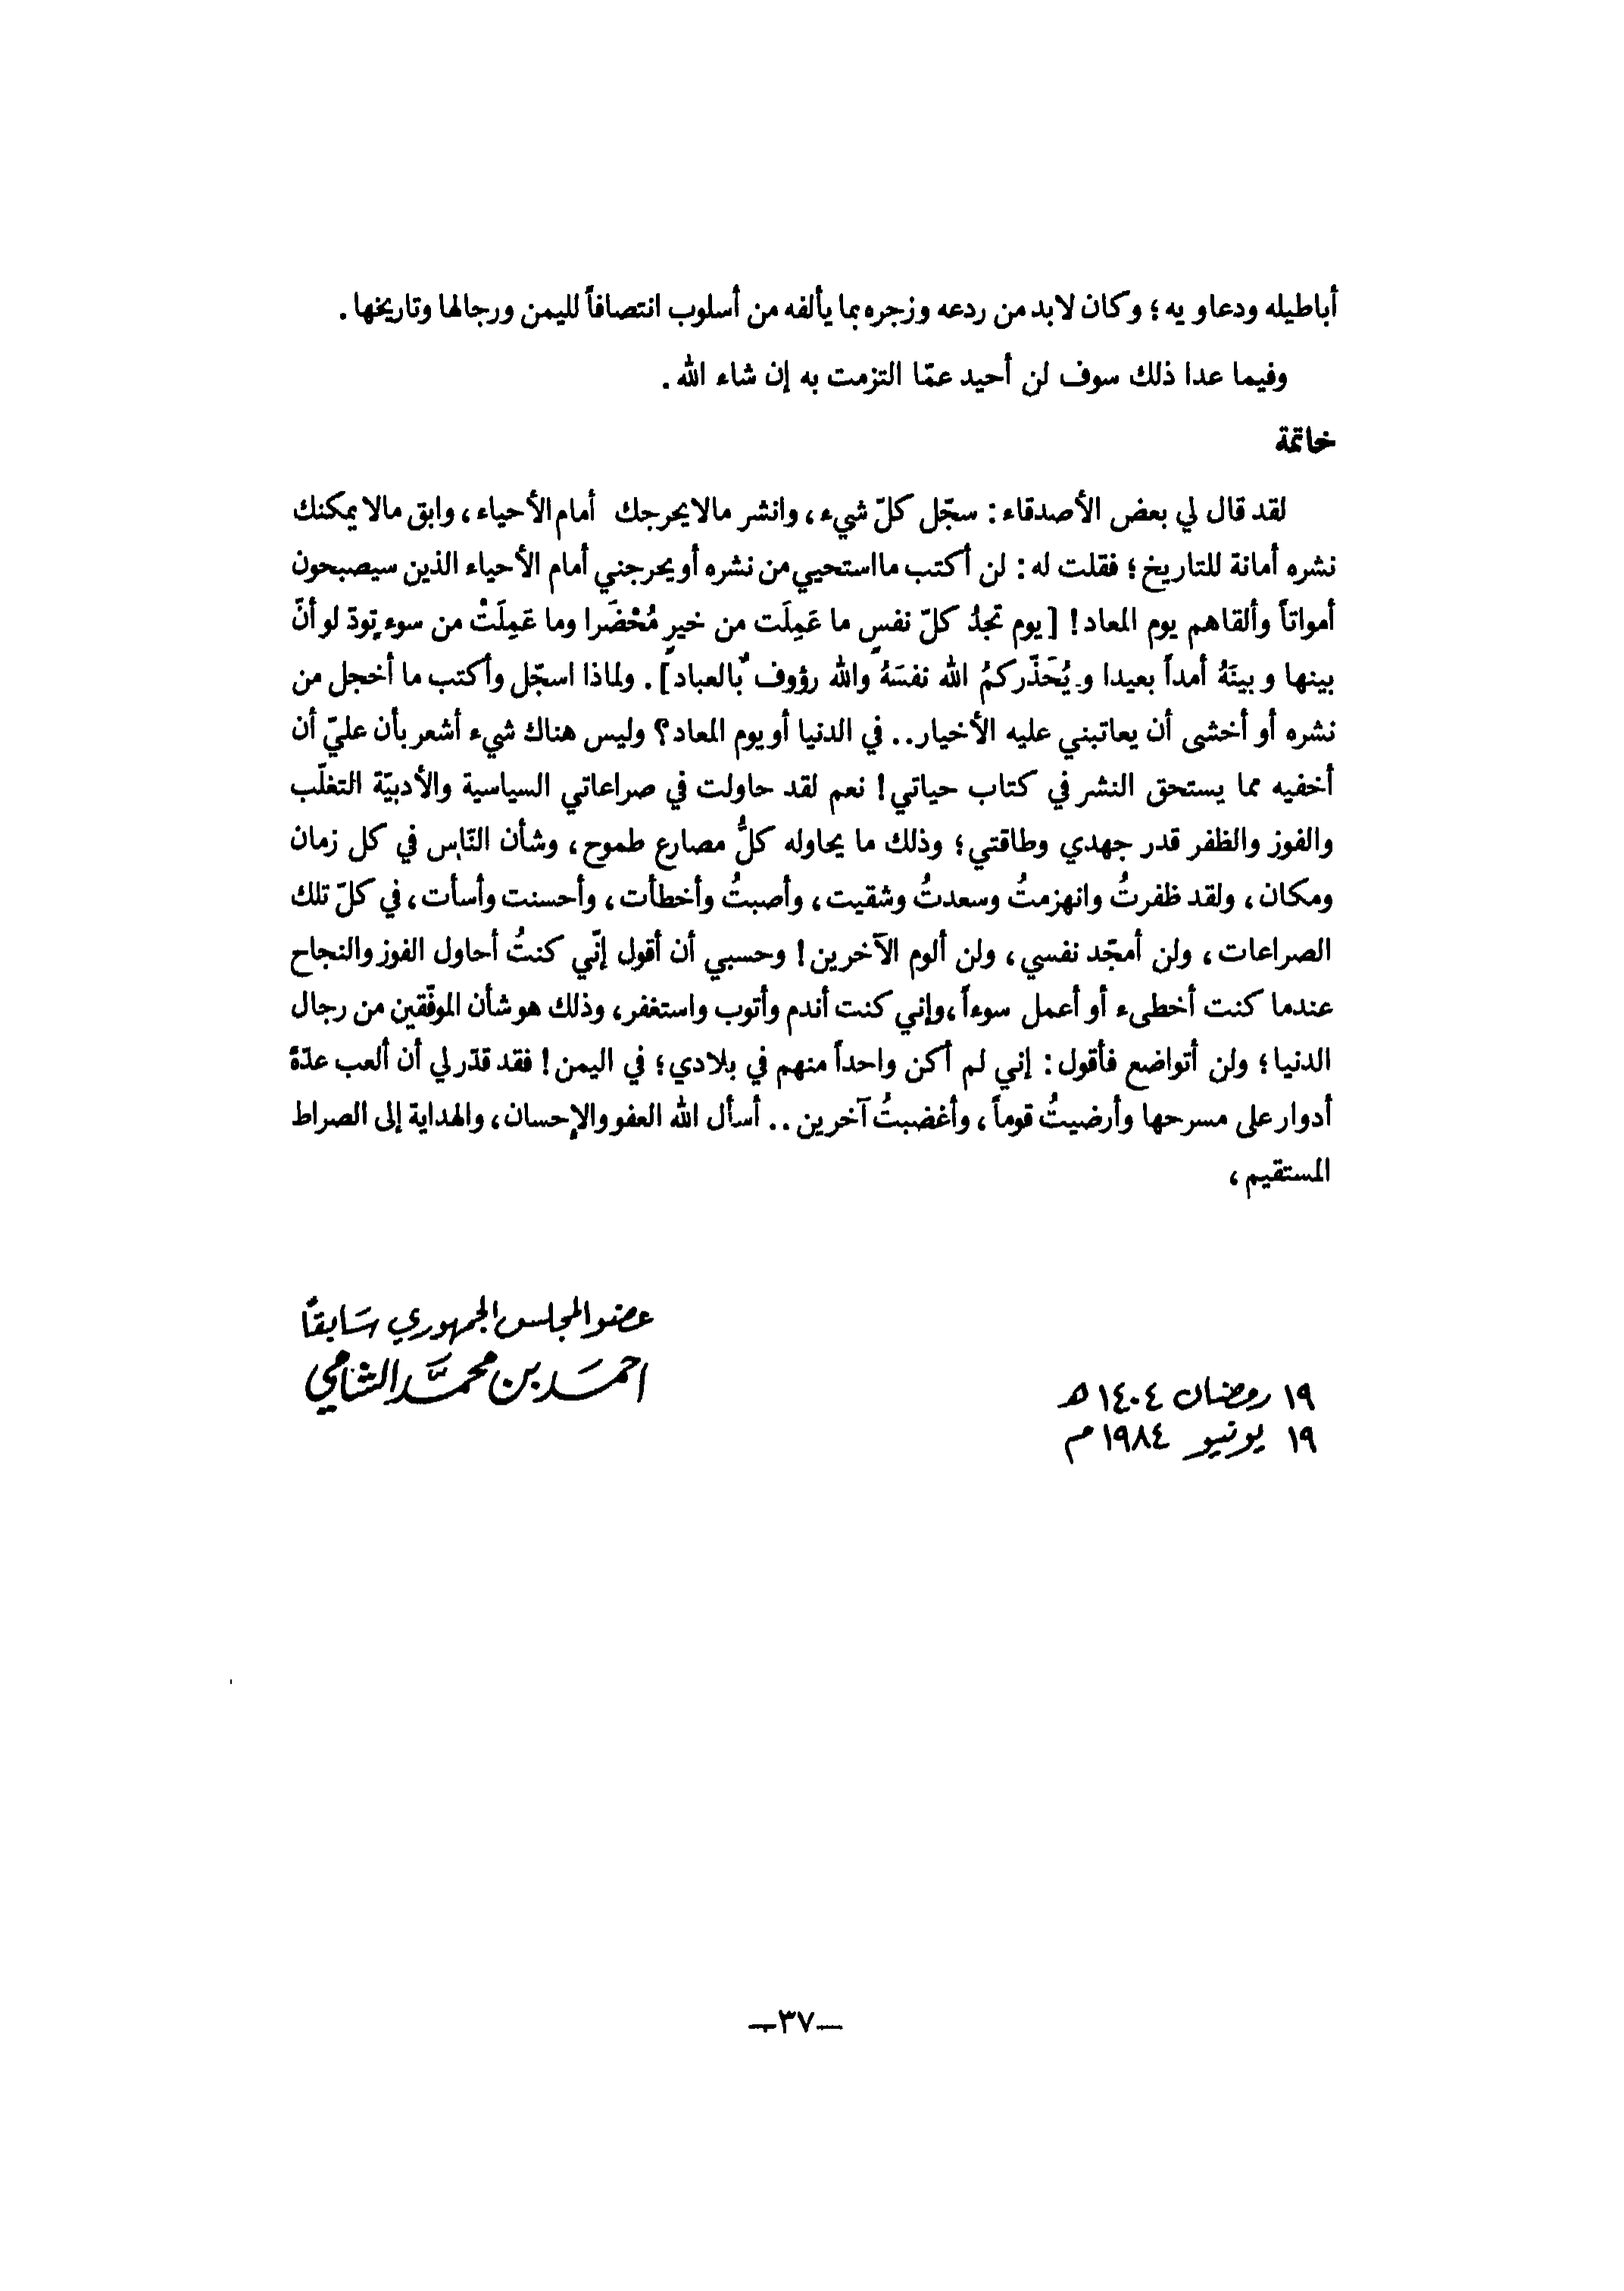 أباطيله ودعاويه ؛ وكان لابد من ردعه وزجره بما يألفه من أسلوب انتصافاً لليمن ورجالها وتاريخها .
وفيما عدا ذلك سوف لن أحيد عمّا التزمت به إن شاء الله .
خاتمة
لقد قال لي بعض الأصدقاء : سجّل كلّ شيء ، وانشر مالايحرجك أمام الأحياء ، وابق مالا يمكنك
نشره أمانة للتاريخ ؛ فقلت له : لن أكتب مااستحيي من نشره أو يحرجني أمام الأحياء الذين سيصبحون
أمواتاً وألقاهم يوم المعاد ! [ يوم تجدُ كلّ نفسٍ ما عَمِلَت من خيرٍ مُحْضَرا وما عَمِلَتْ من سوءٍ تودّ لو أنّ
بينها وبينَهُ أمداً بعيدا ويُحَذّركمُ الله نفسَهُ والله رؤوفٌ بالعباد ] . ولماذا اسجّل وأكتب ما أخجل من
نشره أو أخشى أن يعاتبني عليه الأخيار .. في الدنيا أو يوم المعاد ؟ وليس هناك شيء أشعر بأن عليّ أن
أخفيه مما يستحق النشر في كتاب حياتي ! نعم لقد حاولت في صراعاتي السياسية والأدبيّة التغلّب
والفوز والظفر قدر جهدي وطاقتي ؛ وذلك ما يحاوله كلُّ مصارع طموح ، وشأن النّاس في كل زمان
ومكان ، ولقد ظفرتُ وانهزمتُ وسعدتُ وشقيت ، وأصبتُ وأخطأت ، وأحسنت وأسأت ، في كلّ تلك
الصراعات ، ولن أمجّد نفسي ، ولن ألوم الآخرين ! وحسبي أن أقول إنّي كنتُ أحاول الفوز والنجاح
عندما كنت أخطىء أو أعمل سوءاً ، وإني كنت أندم وأتوب واستغفر ، وذلك هو شأن الموفّقين من رجال
الدنيا ؛ ولن أتواضع فأقول : إني لم أكن واحداً منهم في بلادي ؛ في اليمن ! فقد قدّر لي أن ألعب عدّة
أدوار على مسرحها وأرضيتُ قوماً ، وأغضبتُ آخرين .. أسأل الله العفو والإحسان ، والهداية إلى الصراط
المستقيم ،
عضو المجلس الجمهوري سَابقاً
احمَد بن محمَّد الشامي
١٩ رمضان ١٤٠٤ هـ
١٩ يونيو ١٩٨٤ م
—٣٧—